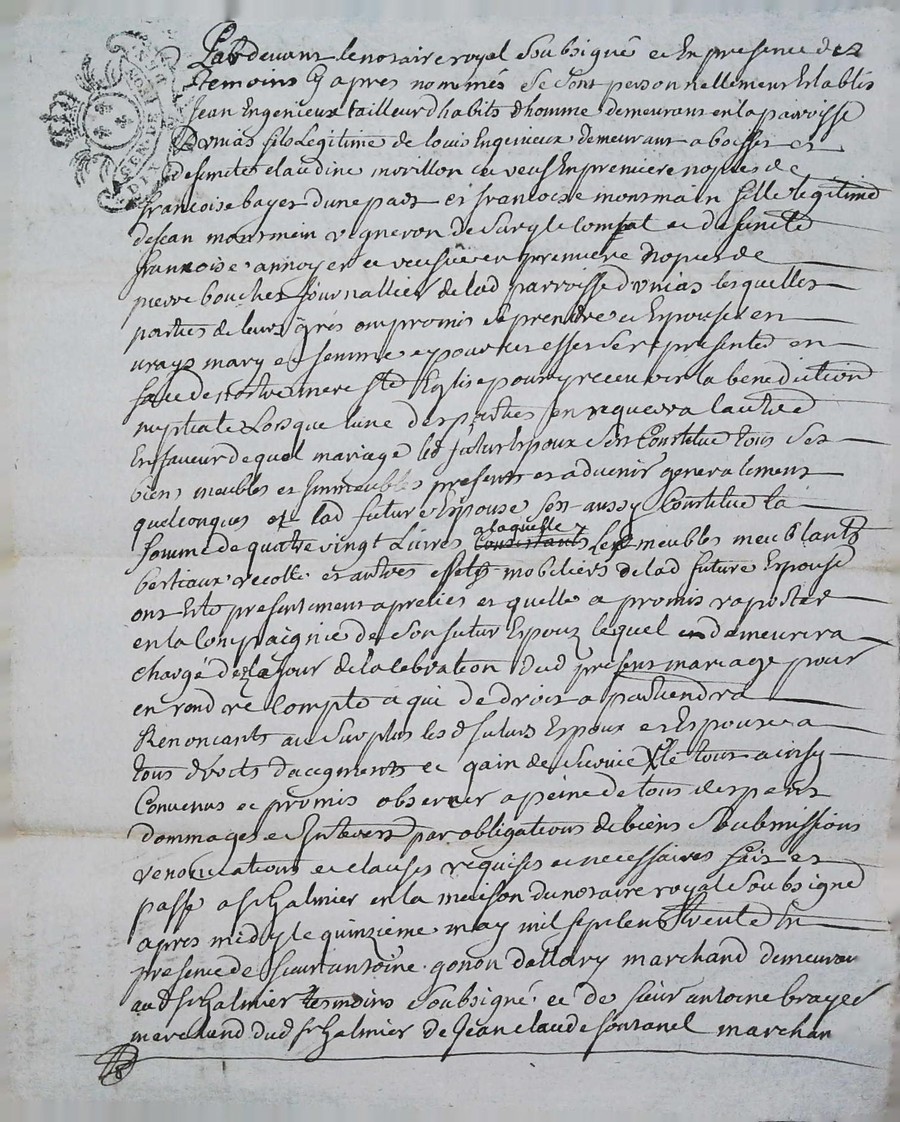 Pardevant le notaire royal soubsigné et en presence des
temoins cy apres nommés se sont personnellement establis
Jean Ingenieux tailleur d'habits d'homme demeurans en la paroisse
d'unias fils Legitime de louis Ingenieux demeurant a boisset et
defuncte claudine morillon et veuf en premiere nopces de
francoise bayet d'une part et francoise montmain fille legitime
de Jean montmein vigneron de Sury le Comtal et defuncte
francoise annoyer et veufve en premiere nopces de
pierre bouchet journallier de lad parroisse d'unias lesquelles
parties de leurs grés ont promis se prendre et Epouser en
vrays mary et femme et pour cet effet se representer en
face de nostre mere ste Eglise pour y recevoir la benediction
nuptiale Lorsque l'une des parties en requerra l'autre
En faveur dequel mariage led futur Epoux s'est Constitué tous ses
biens meubles et Immeubles presents et advenir generalement
quelconques et lad future Epouse s'est aussy Constitué la
somme de quatre vingt Livres a laquelle les meubles meublants
bestiaux recolte et autres effets mobiliers de lad future Epouse
ont Esté presentement apreties et quelle a promis raporter
en la Compaignie de son futur Epoux lequel en demeurera
chargé dez le jour de la celebration dud present mariage pour
en rendre Compte a qui de droit apartiendra
Renoncants au surplus lesd futurs Epoux et Espouse a
tous droits d'augments et gain de survie le tout ainsy
Convenus et promis observer a peine de tous despens
dommages et Interets par obligations de biens soubmissions
renonciations et clauses requises et necessaires fait et
passé a st Galmier en la maison du notaire royal soubsigné
apres midy le quinzieme may mil sept cent trente En
presence de sieur antoine gonon dallary marchand demeurant
aud st Galmier tesmoins soubsigné et de sieur antoine brayet
marchand dud st Galmier de Jean claude fontanel marchan